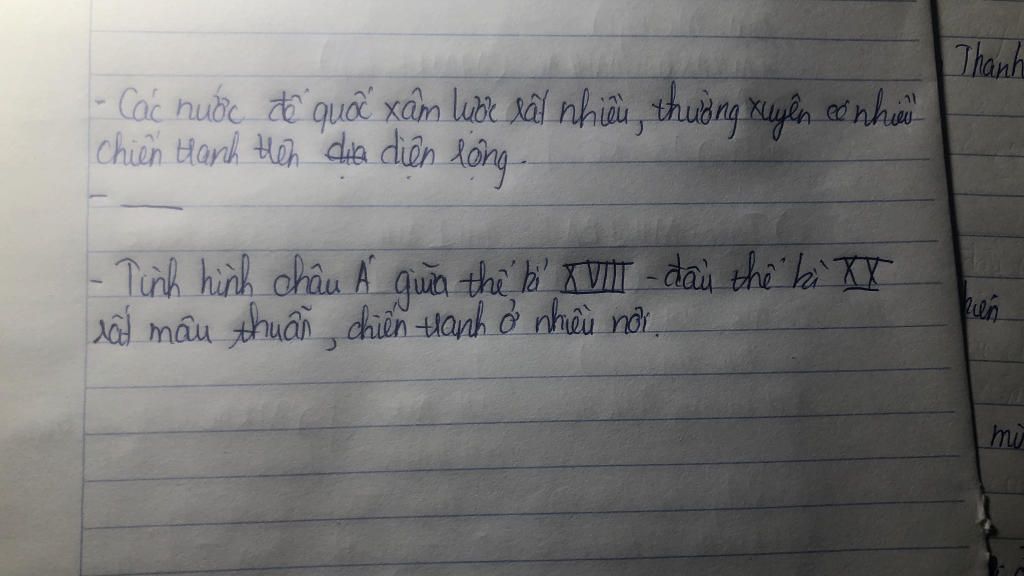 - Các nước đế quốc xâm lược rất nhiều, thường xuyên có nhiều
chiến tranh trên diện rộng.
-
- Tình hình châu Á giữa thế kỉ XVIII - đầu thế kỉ XX
rất mâu thuẫn, chiến tranh ở nhiều nơi.
Thanh
kiến